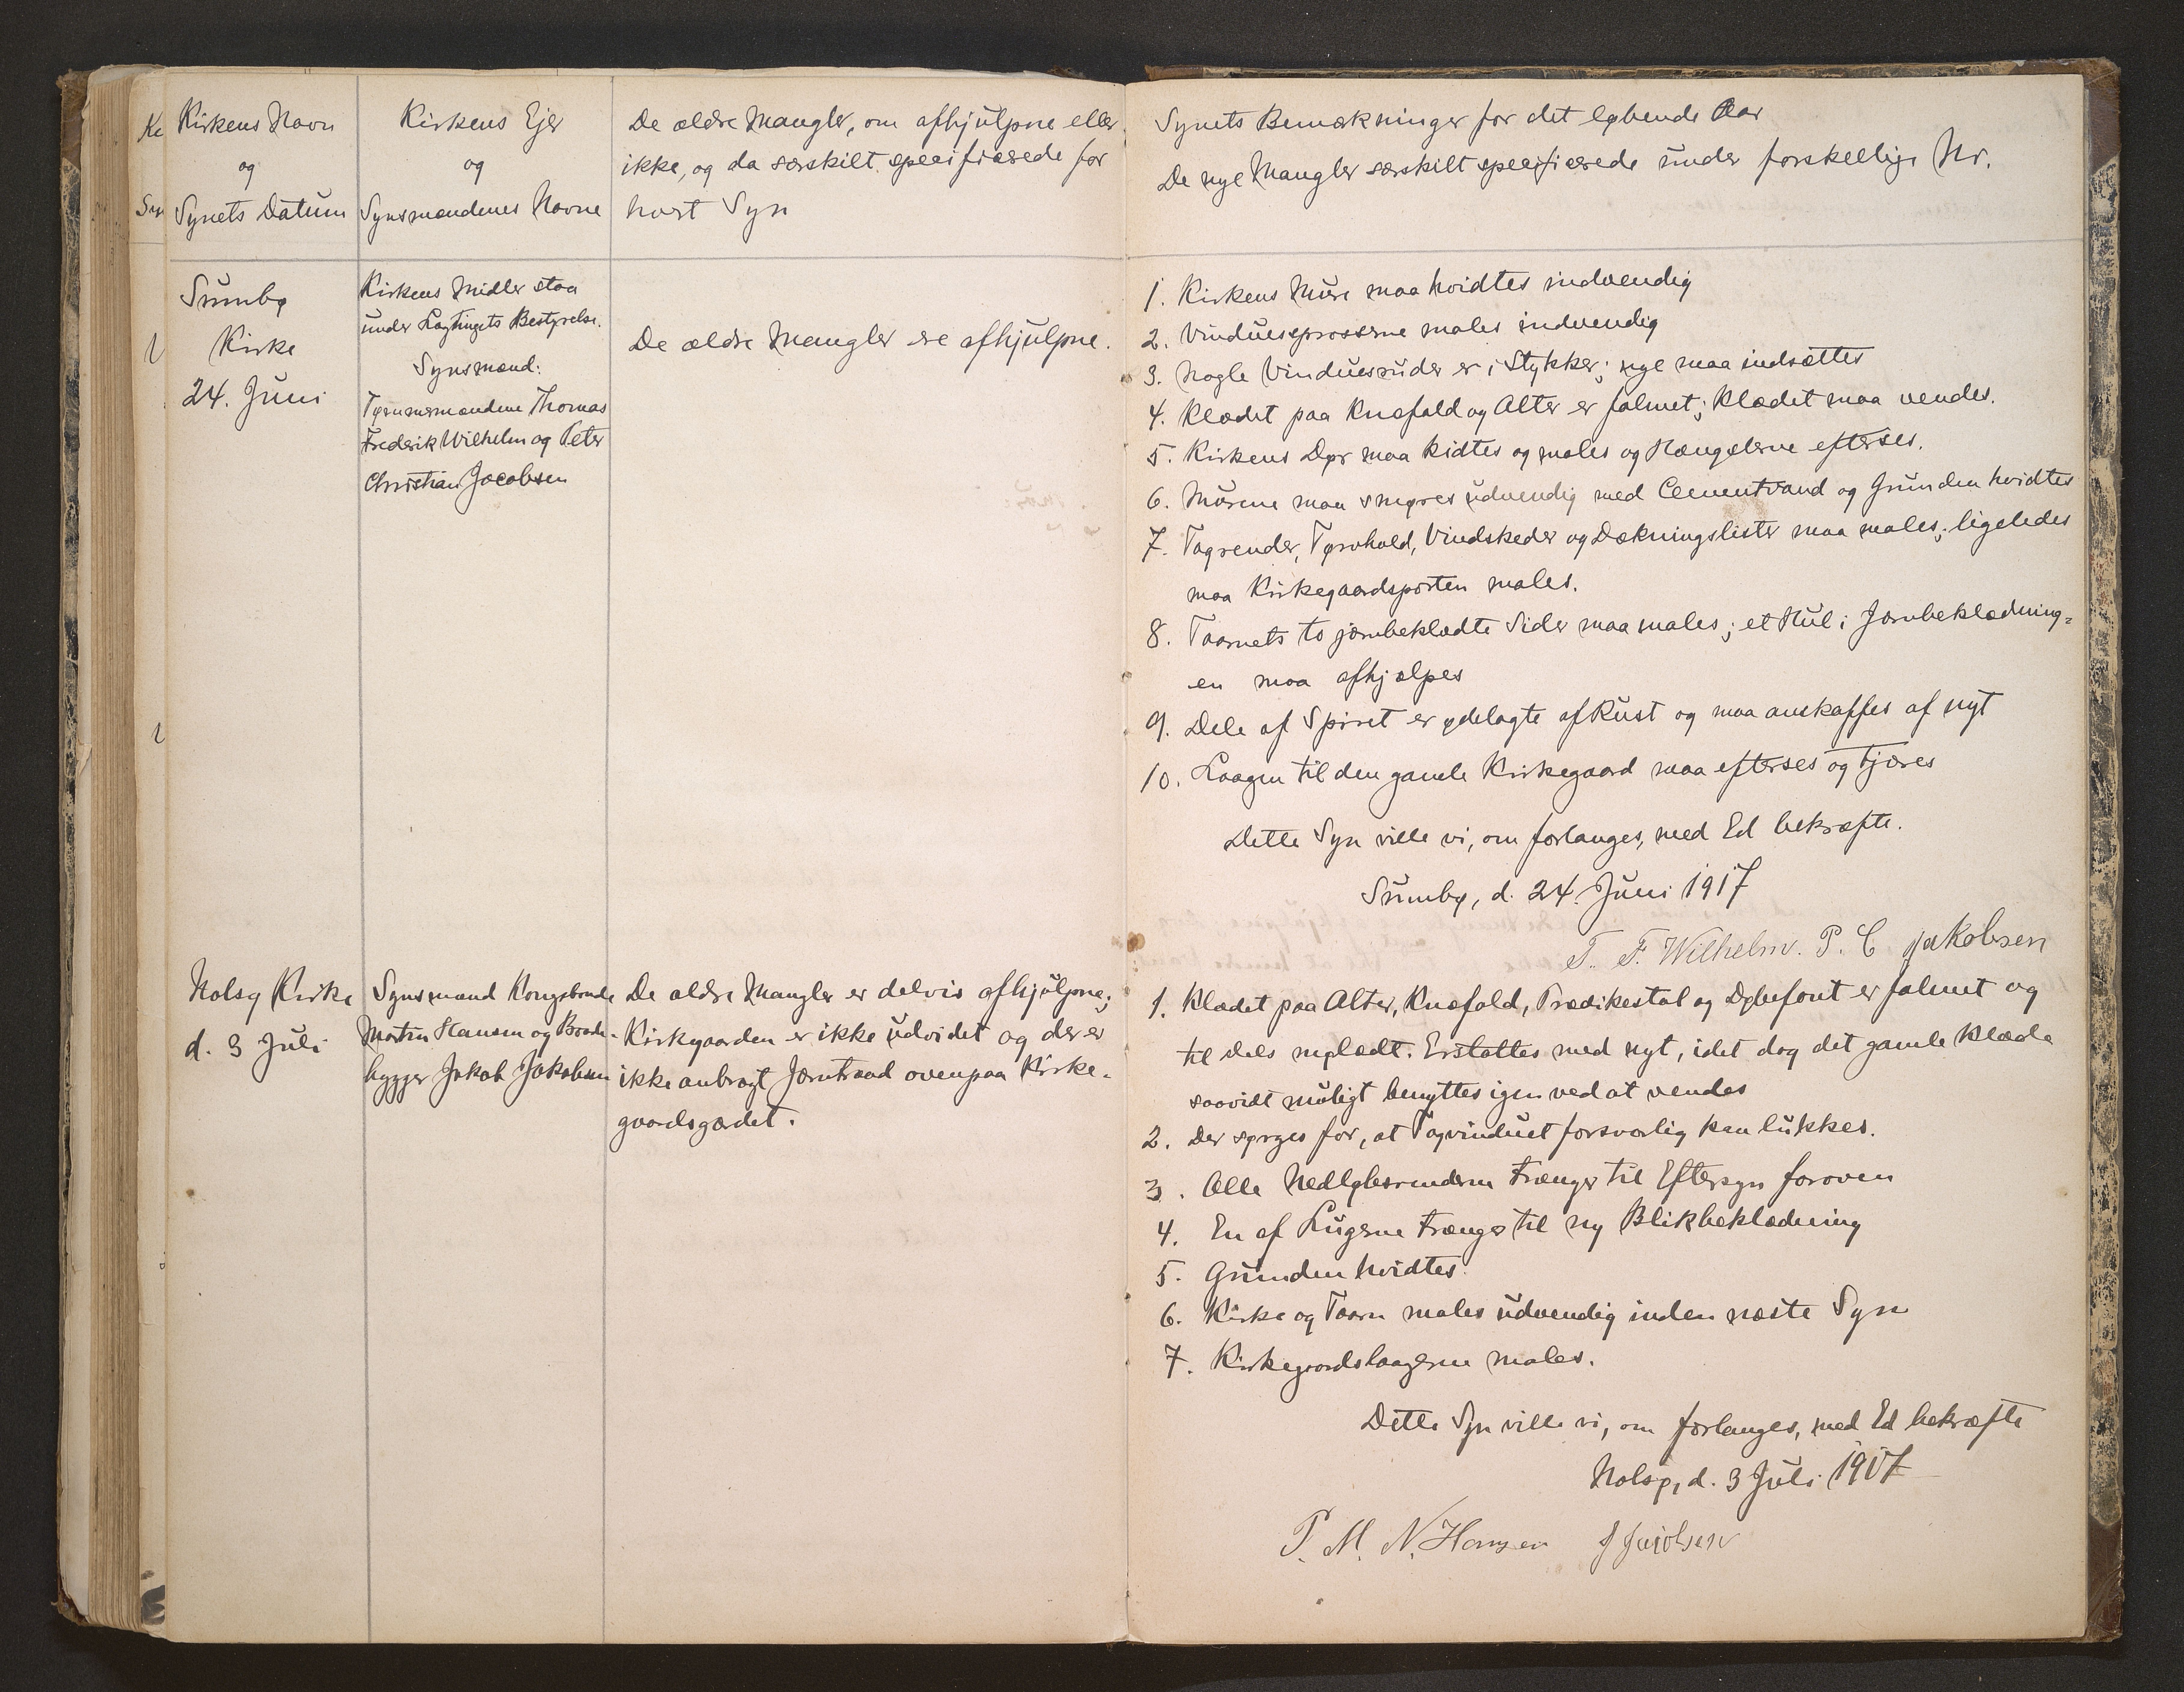 Kirkens Navn
og
Synets Datum
Kirkens Ejer
og
Synsmændenes Navne
De ældre Mangler, om afhjulpne eller
ikke, og da særskilt specificerede for
hvert Syn
Sumbø
Kirke
24. Juni
Kirkens Midler staa
under Lagtingets Bestyrelse.
Synsmænd:
Tømmermændene Thomas
Frederik Wilhelm og Peter
Christian Jacobsen
De ældre Mangler ere afhjulpne.
Nolsø Kirke
d. 3 Juli
Synsmænd Kongsbonde
Morten Hansen og Baade-
bygger Jakob Jakobsen
De ældre Mangler er delvis afhjulpne;
Kirkgaarden er ikke udvidet og der er
ikke anbragt Jærntraad ovenpaa Kirke-
gaardsgærdet.
Synets Bemærkninger for det løbende Aar
De nye Mangler særskilt specificerede under forskellige Nr.
1. Kirkens Mure maa hvidtes indvendig
2. Vinduessprosserne males indvendig
3. Nogle Vinduesruder er i Stykker; nye maa indsættes
4. Klædet paa Knæfald og Alter er falmet; Klædet maa vendes.
5. Kirkens Dør maa kidtes og males og Hængslerne efterses.
6. Murene maa smøres udvendig med Cementvand og Grunden hvidtes
7. Tagrender, Tørvhold, Vindskeder og Dækningslister maa males; ligeledes
maa Kirkegaardsporten males.
8. Taarnets to jærnbeklædte Sider maa males; et Hul i Jærnbeklædning=
en maa afhjælpes
9. Dele af Spiret er ødelagte af Rust og maa anskaffes af nyt
10. Laagen til den gamle Kirkegaard maa efterses og tjæres
Dette Syn ville vi, om forlanges, med Ed bekræfte.
Sumbø, d. 24. Juni 1917
T. F. Wilhelm. P. C Jakobsen
1. Klædet paa Alter, Knæfald, Prædikestol og Døbefont er falmet og
til Dels mølædt. Erstattes med nyt, idet dog det gamle Klæde
saavidt muligt benyttes igen ved at vendes
2. Der sørges for, at Tagvinduet forsvarlig kan lukkes.
3. Alle Nedløbsrenderne trænger til Eftersyn foroven
4. En af Lugerne trænger til ny Blikbeklædning
5. Grunden hvidtes.
6. Kirke og Taarn males udvendig inden næste Syn
7. Kirkegaardslaagerne males.
Dette Syn ville vi, om forlanges, med Ed bekræfte
Nolsø, d. 3 Juli 1917
P. M. N. Hansen J Jacobsen